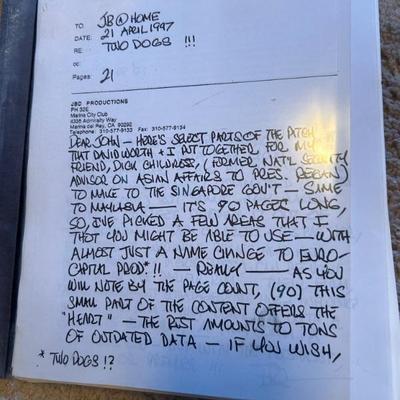 TO: JB @ HOME
DATE: 21 APRIL 1997
RE: TWO DOGS !!!
cc:
Pages: 21
JBD PRODUCTIONS
PH 32E
Marina City Club
4335 Admiralty Way
Marina del Rey, CA 90292
Telephone: 310-577-9133 Fax: 310-577-9134
DEAR JOHN — HERE'S SELECT PARTS OF THE PITCH
THAT DAVID WORTH + I PUT TOGETHER FOR MY
FRIEND, DICK CHILDRESS, (FORMER NAT'L SECURITY
ADVISOR ON ASIAN AFFAIRS TO PRES. REGAN)
TO MAKE TO THE SINGAPORE GOV'T — SAME
TO MALAYSIA — IT'S 90 PAGES LONG,
SO, I'VE PICKED A FEW AREAS THAT I
THOT YOU MIGHT BE ABLE TO USE — WITH
ALMOST JUST A NAME CHANGE TO EURO-
CAPITAL PROD* !! — REALLY — AS YOU
WILL NOTE BY THE PAGE COUNT, (90) THIS
SMALL PART OF THE CONTENT OFFERS THE
"HEART" — THE REST AMOUNTS TO TONS
OF OUTDATED DATA — IF YOU WISH,
* TWO DOGS !?